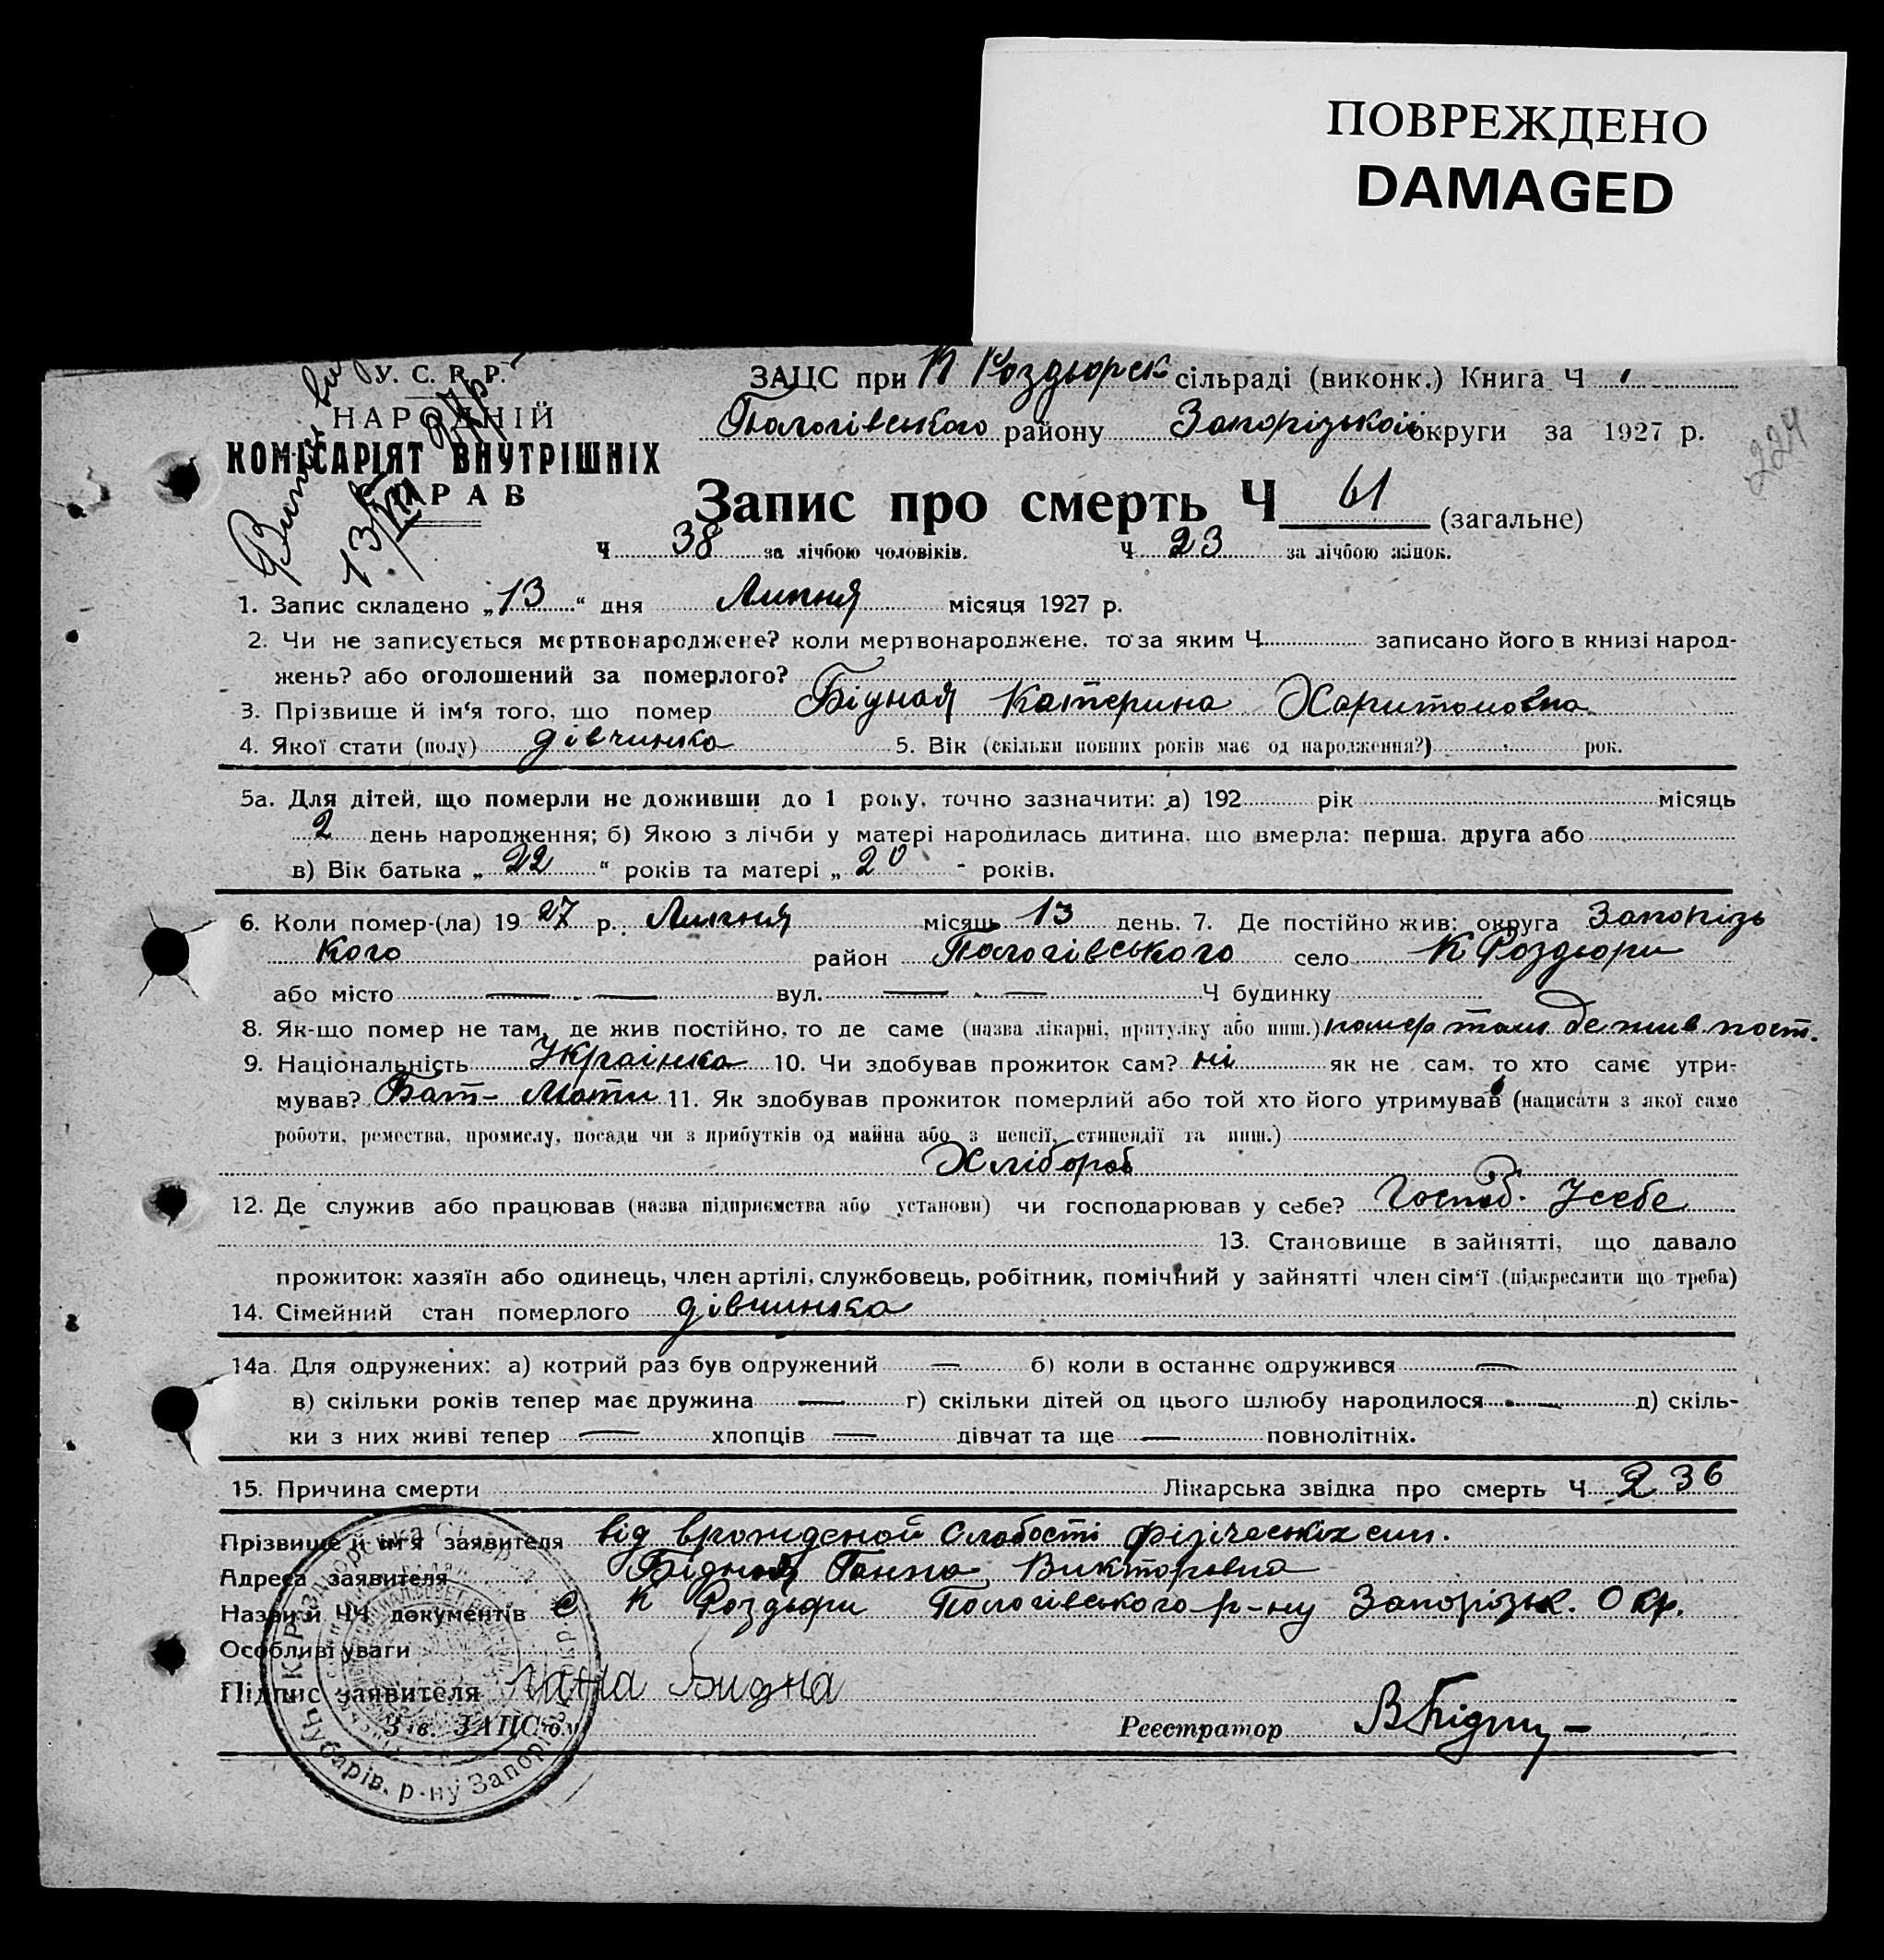 ПОВРЕЖДЕНО
DAMAGED
У. С. Р. Р.
НАРОДНІЙ
КОМІСАРІЯТ ВНУТРІШНІХ
СПРАВ
13/VII 27 р
ЗАЦС при К Роздьорск сільраді (виконк.) Книга Ч
Пологівського району Запорізької округи за 1927 р.
224
Запис про смерть Ч 61 (загальне)
Ч 38 за лічбою чоловіків. Ч 23 за лічбою жінок.
1. Запис складено „13“ дня Липня місяця 1927 р.
2. Чи не записується мертвонароджене? коли мертвонароджене, то за яким Ч записано його в книзі народ-
жень? або оголошений за померлого?
3. Прізвище й ім‘я того, що помер Бідная Катерина Харитоновна
4. Якої стати (полу) дівчинка 5. Вік (скільки повних років має од народження?) рок.
5а. Для дітей, що померли не доживши до 1 року, точно зазначити: а) 192 рік місяць
2 день народження; б) Якою з лічби у матері народилась дитина, що вмерла: перша, друга або
в) Вік батька „22“ років та матері „20 - років.
6. Коли помер-(ла) 1927 р. Липня місяць 13 день. 7. Де постійно жив: округа Запопізь
кого район Пологівського село К Роздьори
або місто — — вул. — — Ч будинку
8. Як-що помер не там, де жив постійно, то де саме (назва лікарні, притулку або инш.) помер там де жив пост.
9. Національність Украінка 10. Чи здобував прожиток сам? ні як не сам, то хто саме утри-
мував? Бат- Мати 11. Як здобував прожиток померлий або той хто його утримував (написати з якої саме
роботи, ремества, промислу, посади чи з прибутків од майна або з пенсії, стипендії та инш.)
Хлібороб
12. Де служив або працював (назва підприємства або установи) чи господарював у себе? Господ. Усебе
13. Становище в зайнятті, що давало
прожиток: хазяїн або одинець, член артілі, службовець, робітник, помічний у зайнятті член сім‘ї (підкреслити що треба)
14. Сімейний стан померлого дівчинка
14а. Для одружених: а) котрий раз був одружений — б) коли в останнє одружився —
в) скільки років тепер має дружина — г) скільки дітей од цього шлюбу народилося — д) скіль-
ки з них живі тепер — хлопців — дівчат та ще — повнолітніх.
15. Причина смерти Лікарська звідка про смерть Ч 236
Прізвище й ім‘я заявителя від врожденой слабості фізіческіх сил.
Адреса заявителя Бідная Ганна Викторовна
Назви й ЧЧ документів с К Роздьори Пологівського р-ну Запорізьк. Окр.
Особливі уваги
Підпис заявителя Гана Бидна
Зав. ЗАЦС'ом Реєстратор В Бідни
Чубарів. р-ну Запорізьк. окр.